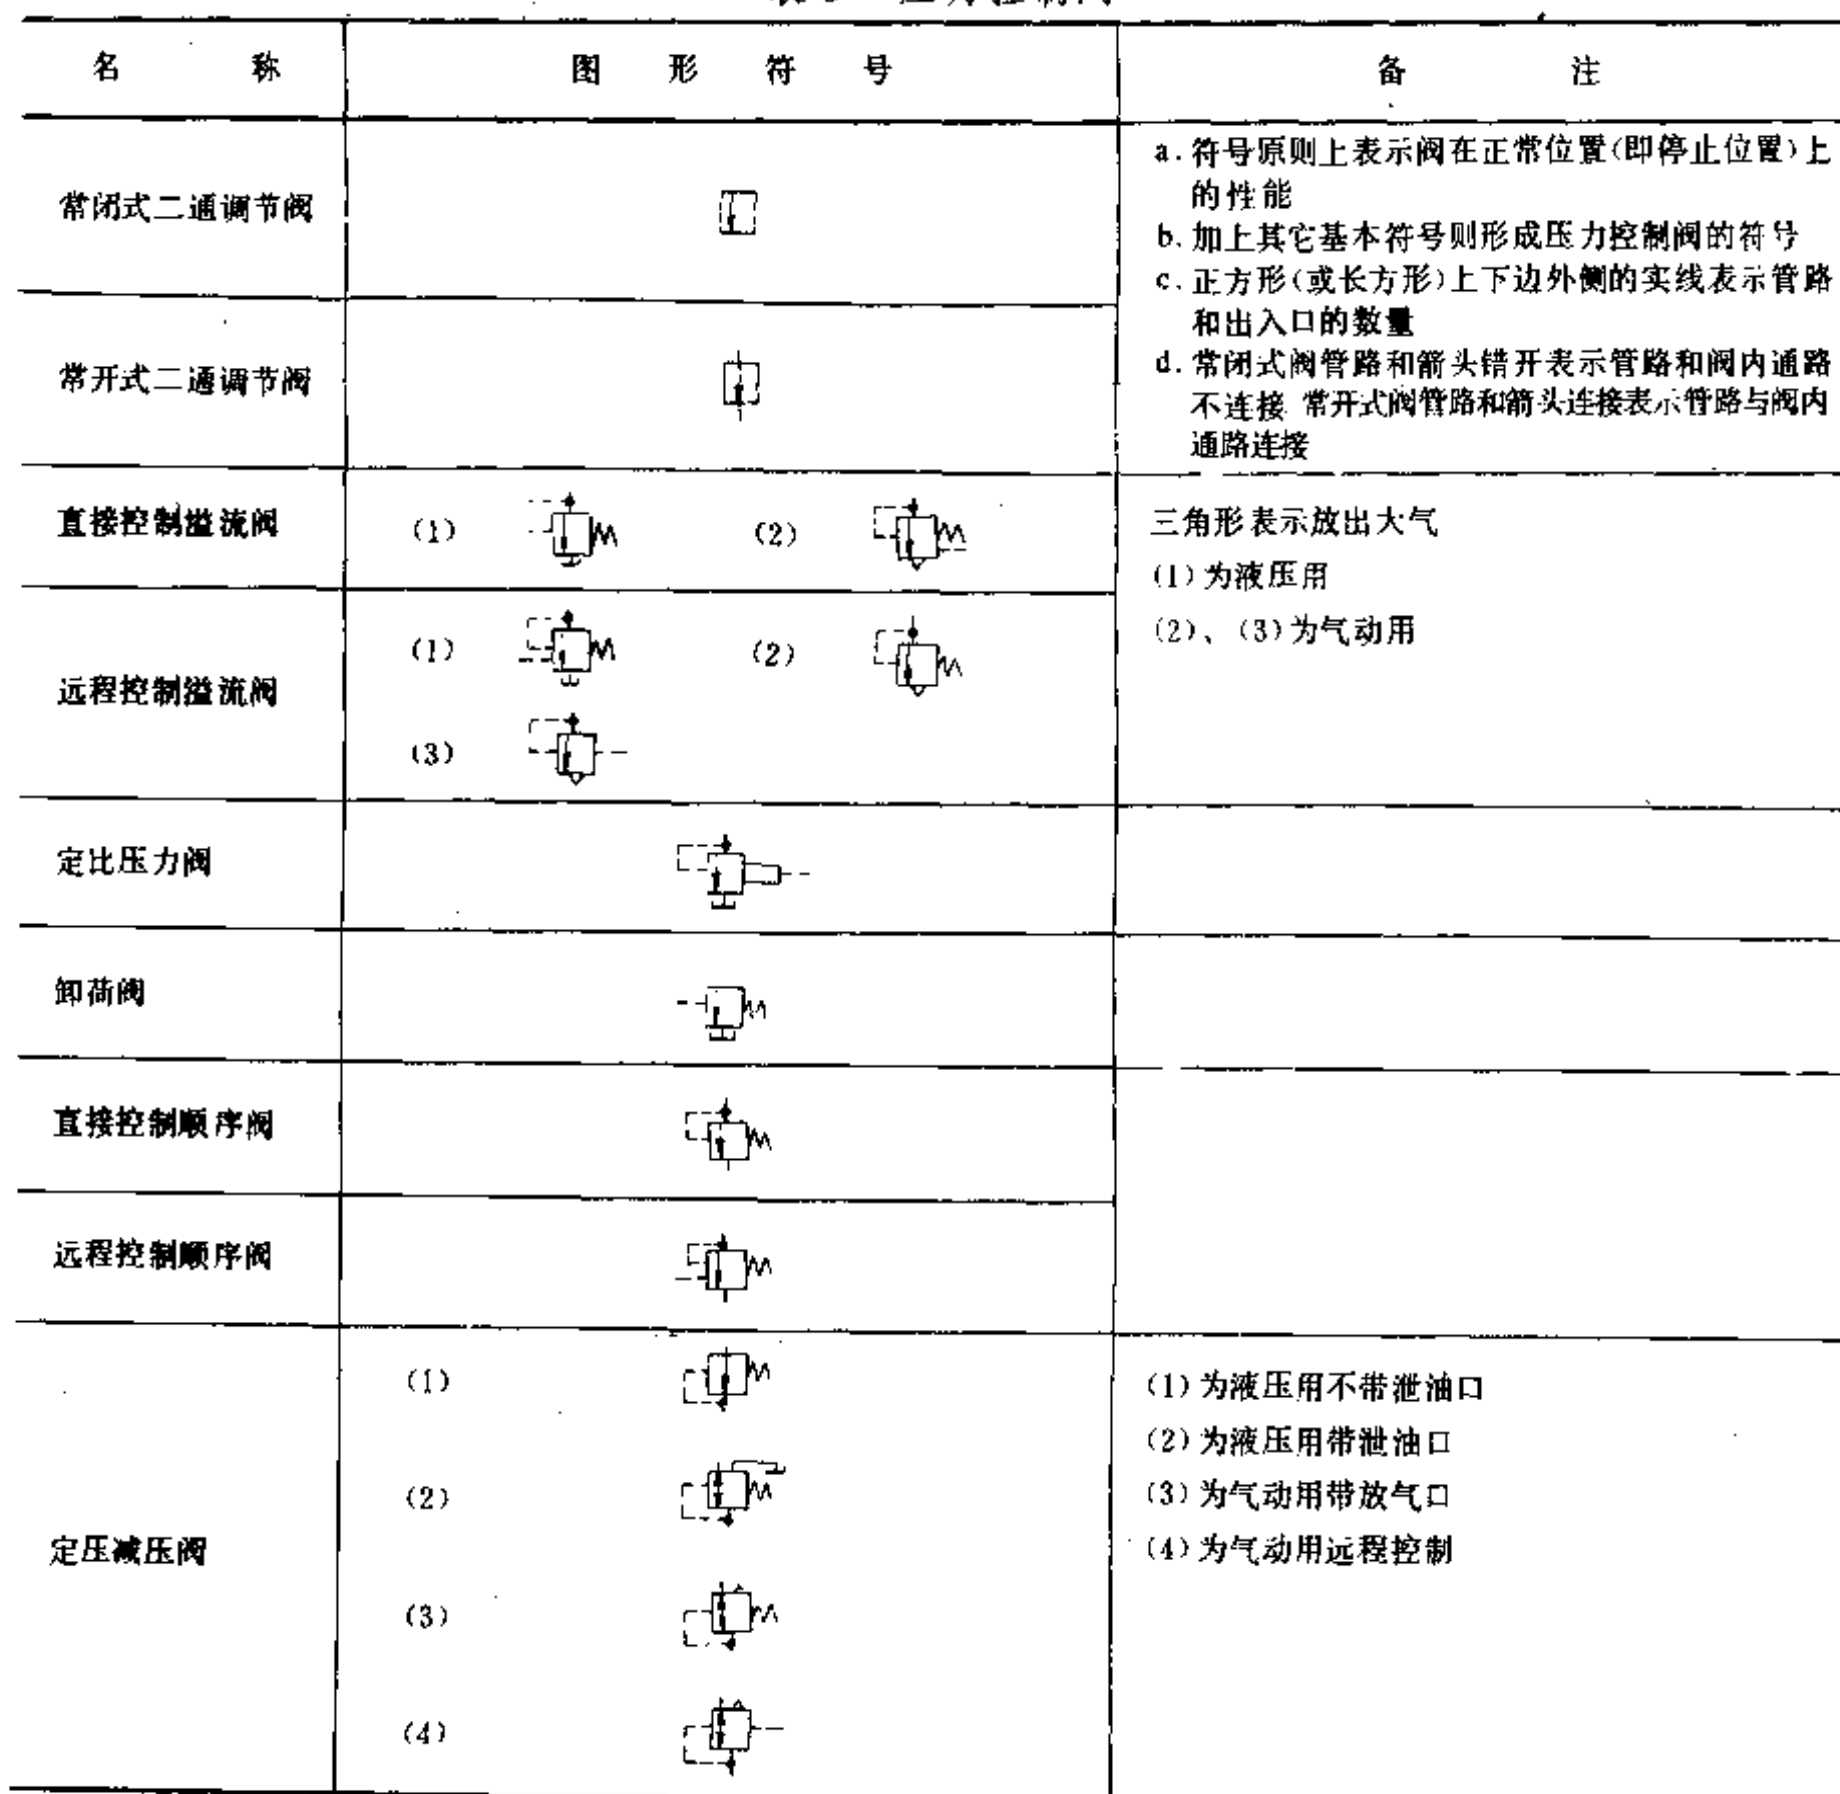 名称 图形符号 备注
常闭式二通调节阀
a. 符号原则上表示阀在正常位置(即停止位置)上
的性能
b. 加上其它基本符号则形成压力控制阀的符号
c. 正方形(或长方形)上下边外侧的实线表示管路
和出入口的数量
常开式二通调节阀
d. 常闭式阀管路和箭头错开表示管路和阀内通路
不连接 常开式阀管路和箭头连接表示管路与阀内
通路连接
直接控制溢流阀 (1) (2)
三角形表示放出大气
(1)为液压用
(2)、(3)为气动用
远程控制溢流阀 (1) (2)
(3)
定比压力阀
卸荷阀
直接控制顺序阀
远程控制顺序阀
定压减压阀
(1)
(2)
(3)
(4)
(1)为液压用不带泄油口
(2)为液压用带泄油口
(3)为气动用带放气口
(4)为气动用远程控制